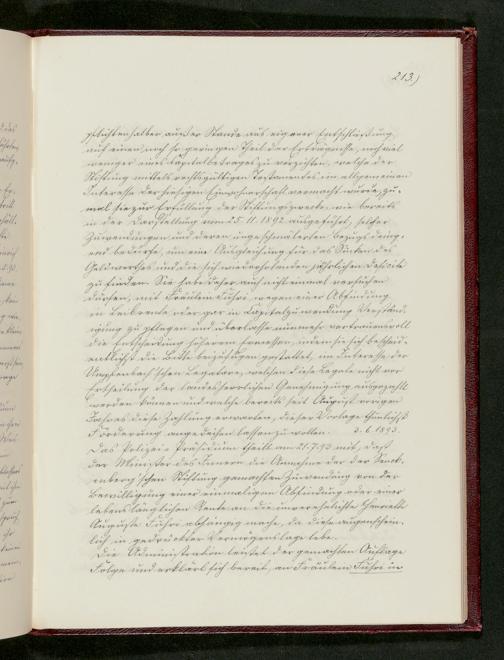 213.)
pflichtenhalber außer Stande aus eigener Entschließung
auf einen noch so geringen Theil der Erträgnisse, noch viel
weniger eines Capitalbetrages zu verzichten, welche der
Stiftung mittels rechtsgültigen Testamentes im allgemeinen
Interesse der hiesigen vermacht wurde, zu-
mal sie zur Erfüllung der Stiftungszwecke, wie bereits
in der Darstellung vom 25. 11. 1892 ausgeführt, solcher
Zuwendungen und deren ungeschmälerten bezugs dring-
end bedürfe, um eine Ausgleichung für das Sinken des
Geldwerthes und die sich wiederholenden jährlichen Deficits
zu finden. Sie habe daher auch nicht einmal versuchen
dürfen, mit Fräulein Fuhri, wegen einer Abfindung
in Leibrente oder gar in Capitalzuwendung Verständ-
igung zu pflegen und überlasse nunmehr vertrauensvoll
die Entscheidung höherem Ermessen, indem sie sich bescheid-
entlichst die Bitte beizufügen gestattet, im Interesse der
Legatare, welchen diese Legate nicht vor
Ertheilung der landesherrlichen Genehmigung ausgezahlt
werden können und welche bereits seit August vorigen
Jahres diese Zahlung erwarten, dieser Vorlage thunlichst
Förderung angedeihen lassen zu wollen. 3. 6. 1893.
Das Polizei-Präsidium theilt am 21.7.93 mit, daß
der Minister des Innern die Annahme der der Senck-
enberg'schen Stiftung gemachten Zuwendung von der
Bewilligung einer einmaligen Abfindung oder einer
lebenslänglichen Rente an die unverehelichte
Auguste Fuhri abhängig mache, da diese augenschein-
lich in gedrückter Vermögenslage lebe.
Die Administration leistet der gemachten Auflage
Folge und erklärt sich bereit, an Fräulein Fuhri in